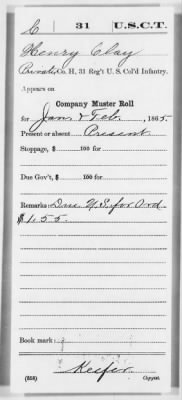 C | 31 | U.S.C.T.
Henry Clay
Private, Co. H, 31 Reg't U. S. Col'd Infantry.
Appears on
Company Muster Roll
for Jan & Feb, 1865.
Present or absent Present
Stoppage, $ 100 for
Due Gov't, $ 100 for
Remarks: Due U.S. for Ord
$1.55.
Book mark:
Keefer
(358) Copyist.